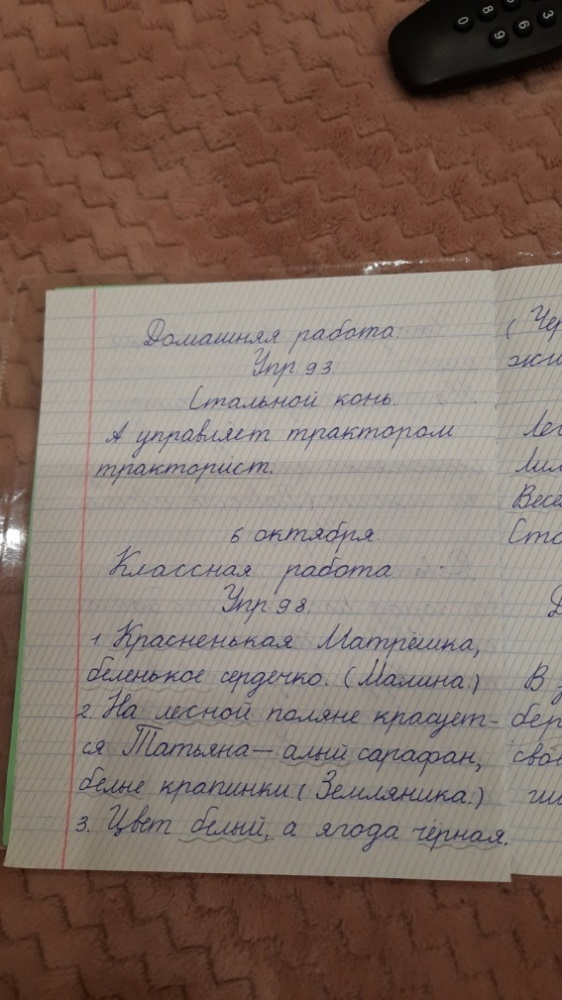 Домашняя работа.
Упр 93.
Стальной конь.
А управляет трактором
тракторист.
6 октября.
Классная работа.
Упр 98.
1. Красненькая Матрёшка,
беленькое сердечко. (Малина.)
2. На лесной поляне красует-
ся Татьяна — алый сарафан,
белые крапинки (Земляника.)
3. Цвет белый, а ягода чёрная.
(Чер
жи
Лег
Весе
Ста
Д
В з
бер
своё
ши
0 8
9 6 3